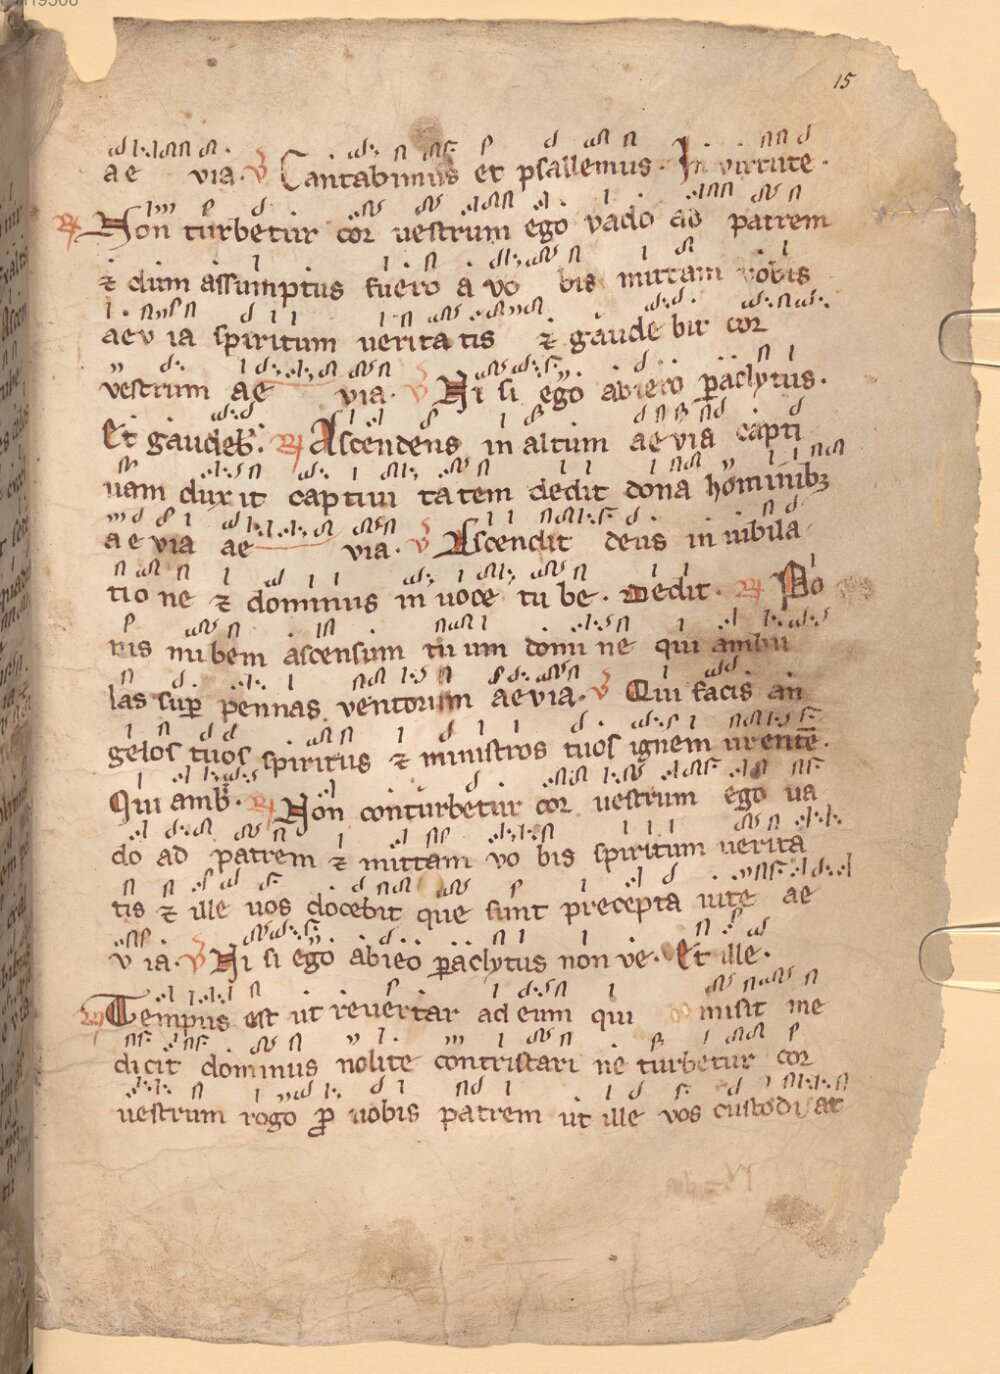 15
ae via. V Cantabimus et psallemus. In virtute.
R Non turbetur cor uestrum ego vado ad patrem
⁊ dum assumptus fuero a vo bis mittam vobis
aev ia spiritum ueritatis ⁊ gaudebit cor
vestrum ae via. V Ni si ego abiero paclytus.
Et gaudeb. R Ascendens in altum aevia capti
uam duxit captiui tatem dedit dona hominibꝫ
aevia ae via. V Ascendit deus in iubila
tio ne ⁊ dominus in uoce tu be. Dedit. R Po
nis nubem ascensum tu um domi ne qui ambu
las suꝑ pennas ventorum aevia. V Qui facis an
gelos tuos spiritus ⁊ ministros tuos ignem urentē.
Qui amb. R Non conturbetur cor vestrum ego ua
do ad patrem ⁊ mittam vo bis spiritum uerita
tis ⁊ ille uos docebit que sunt precepta uite ae
v ia. V Ni si ego abieo ꝑaclytus non ve. Et ille.
R Tempus est ut reuertar ad eum qui misit me
dicit dominus nolite contristari ne turbetur cor
uestrum rogo ꝓ uobis patrem ut ille vos custodiat